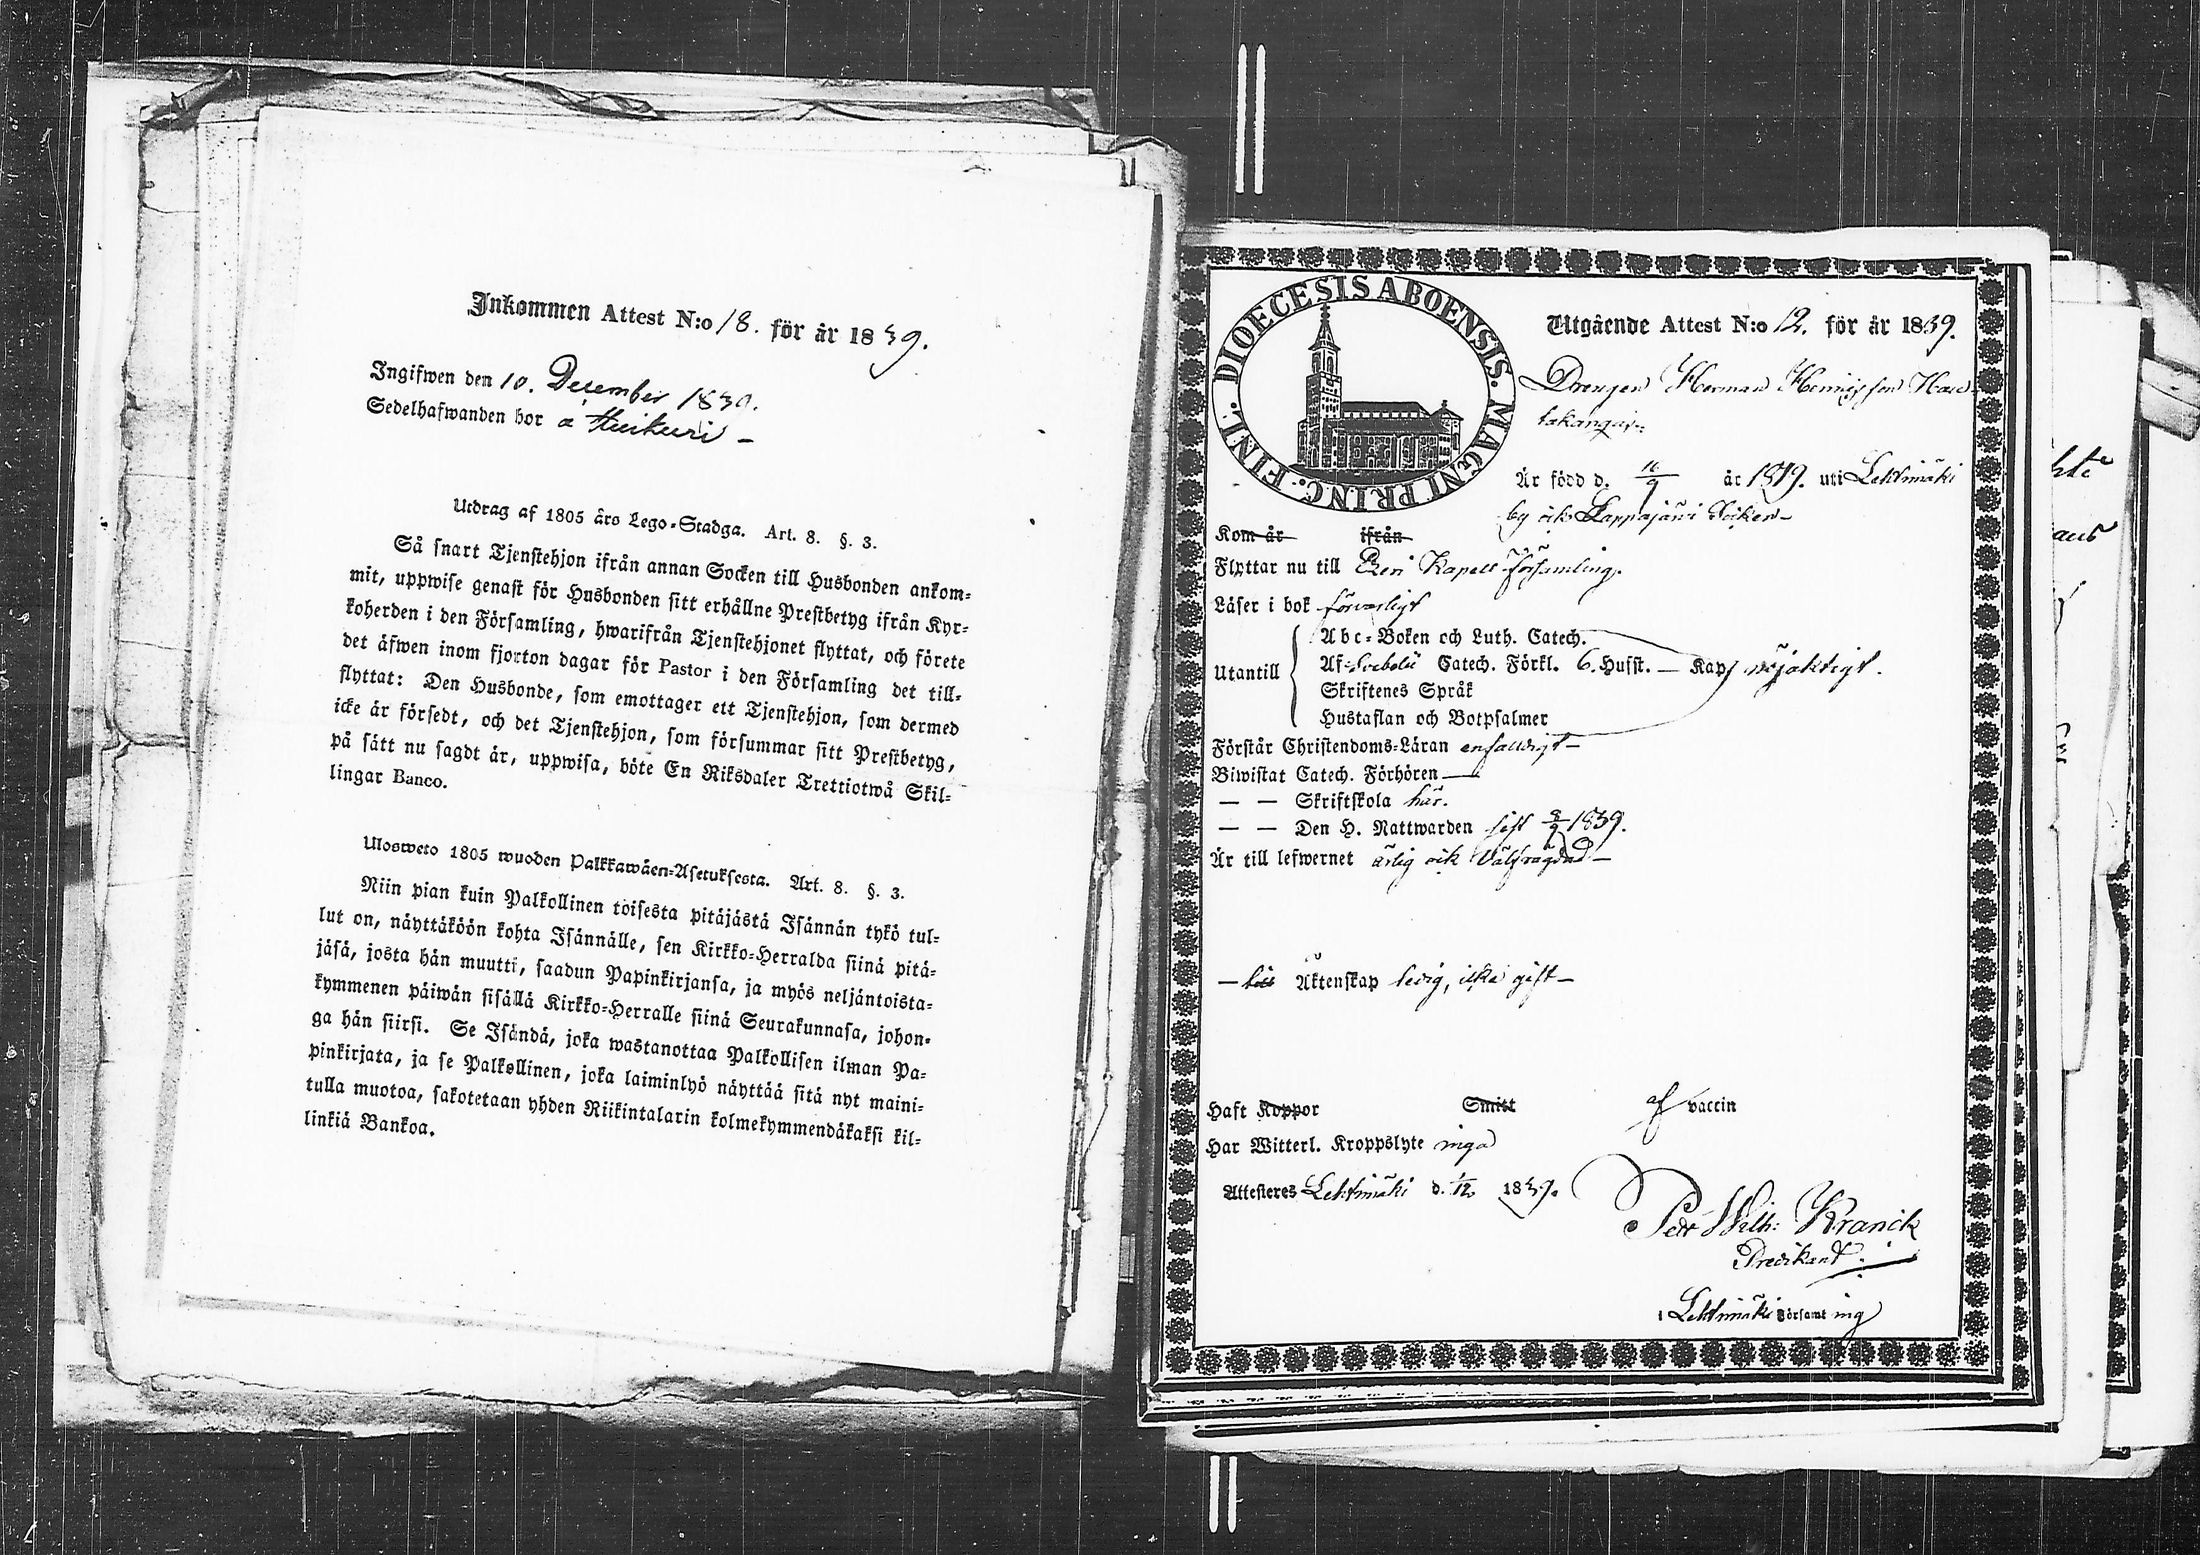 Inkommen Attest N:o 18. för år 1839.
Ingifwen den 10. December 1839.
Sedelhafwanden bor å Huikuri –
Utdrag af 1805 års Lego-Stadga. Art. 8. §. 3.
Så snart Tjenstehjon ifrån annan Socken till Husbonden ankom-
mit, uppwise genast för Husbonden sitt erhållne Prestbetyg ifrån Kyr-
koherden i den Församling, hwarifrån Tjenstehjonet flyttat, och förete
det äfwen inom fjorton dagar för Pastor i den Församling det till-
flyttat: Den Husbonde, som emottager ett Tjenstehjon, som dermed
icke är försedt, och det Tjenstehjon, som försummar sitt Prestbetyg,
på sätt nu sagdt är, uppwisa, böte En Riksdaler Trettiotwå Skil-
lingar Banco.
Ulosweto 1805 wuoden Palkkawäen-Asetuksesta. Art. 8. §. 3.
Niin pian kuin Palkollinen toisesta pitäjästä Isännän tykö tul-
lut on, näyttäköön kohta Isännälle, sen Kirkko-Herralda siinä pitä-
jäsä, josta hän muutti, saadun Papinkirjansa, ja myös neljäntoista-
kymmenen päiwän sisällä Kirkko-Herralle siinä Seurakunnasa, johon-
ga hän siirsi. Se Isändä, joka wastanottaa Palkollisen ilman Pa-
pinkirjata, ja se Palkollinen, joka laiminlyö näyttää sitä nyt maini-
tulla muotoa, sakotetaan yhden Riikintalarin kolmekymmendäkaksi kil-
linkiä Bankoa.
DIOECESIS ABOENSIS. MAGNI PRINC. FINL.
Utgående Attest N:o 12. för år 1839.
Drengen Herman Henriksson Hau-
takangas
Är född d. 16/9 år 1819. uti Lehtimäki
by och Lappajärvi Socken –
Kom år ifrån
Flyttar nu till Evri Kapell Församling.
Läser i bok försvarligt
Utantill
Abc-Boken och Luth. Catech.
Af Svebelii Catech. Förkl. 6. Hufst. – Kap. nöjaktigt.
Skriftenes Språk
Hustaflan och Botpsalmer
Förstår Christendoms-Läran enfaldigt –
Biwistat Catech. Förhören –
– – Skriftskola här.
– – Den H. Nattwarden sist 8/9 1839.
Är till lefwernet ärlig och välfrägdad –
– till Äktenskap ledig, icke gift –
Haft Koppor Smitt af vaccin
Har Witterl. Kroppslyte inga
Attesteras Lehtimäki d. 1/12 1839.
Petr Wilh: Kranck
Predikant
i Lehtimäki Församling
hte
aus